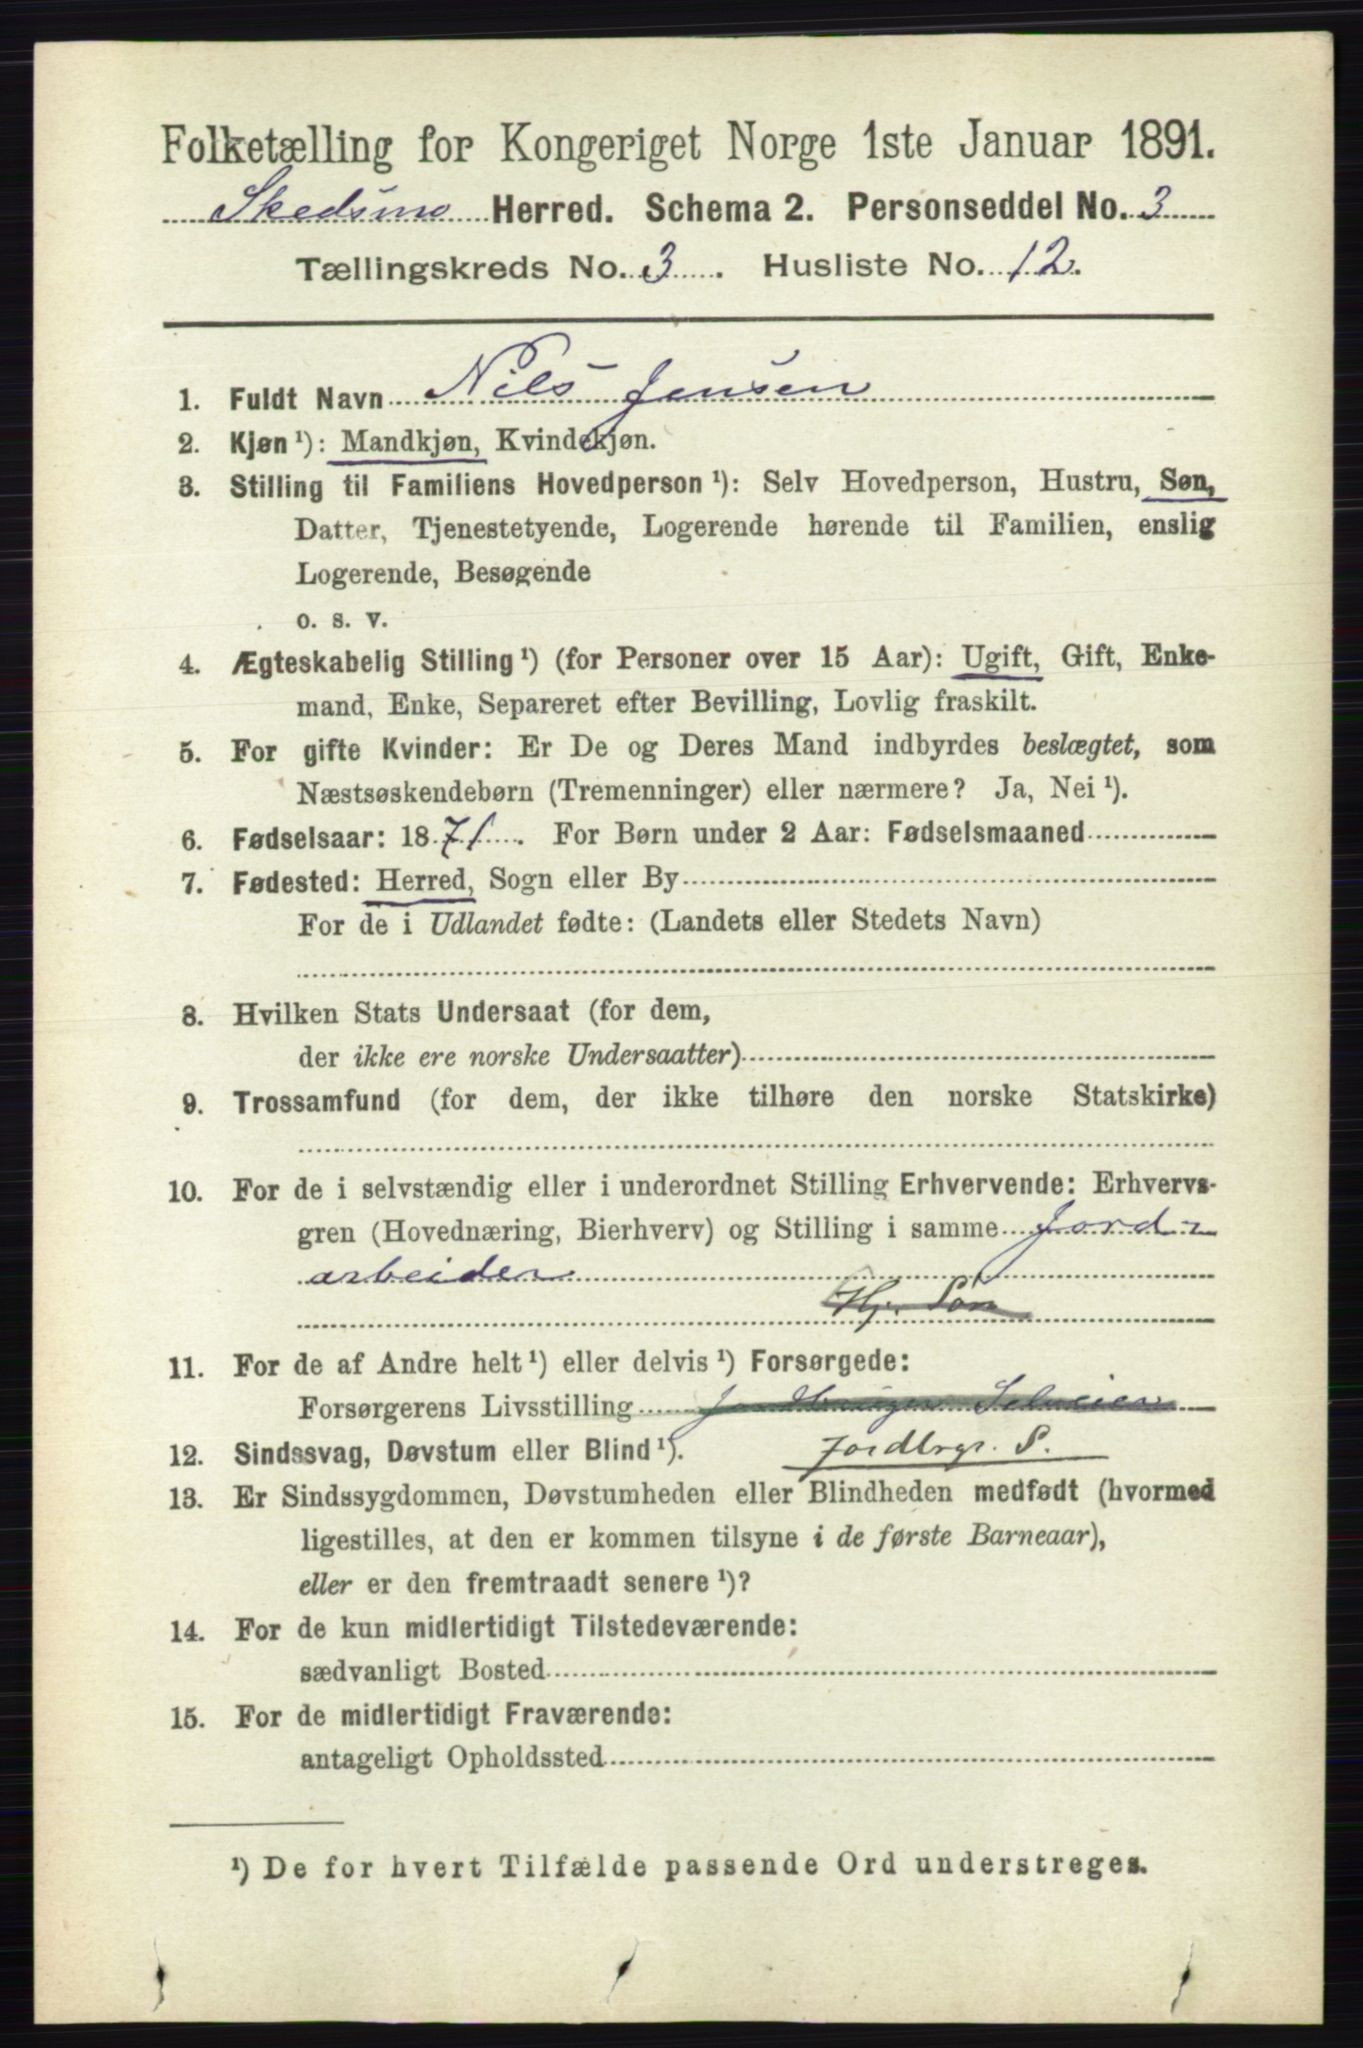 Folketælling for Kongeriget Norge 1ste Januar 1891.
Skedsmo Herred. Schema 2. Personseddel No. 3
Tællingskreds No. 3. Husliste No. 12.
1. Fuldt Navn Nils Jensen
2. Kjøn ¹): Mandkjøn, Kvindekjøn.
3. Stilling til Familiens Hovedperson ¹): Selv Hovedperson, Hustru, Søn,
Datter, Tjenestetyende, Logerende hørende til Familien, enslig
Logerende, Besøgende
o. s. v.
4. Ægteskabelig Stilling ¹) (for Personer over 15 Aar): Ugift, Gift, Enke-
mand, Enke, Separeret efter Bevilling, Lovlig fraskilt.
5. For gifte Kvinder: Er De og Deres Mand indbyrdes beslægtet, som
Næstsøskendebørn (Tremenninger) eller nærmere? Ja, Nei ¹).
6. Fødselsaar: 1871. For Børn under 2 Aar: Fødselsmaaned
7. Fødested: Herred, Sogn eller By
For de i Udlandet fødte: (Landets eller Stedets Navn)
8. Hvilken Stats Undersaat (for dem,
der ikke ere norske Undersaatter)
9. Trossamfund (for dem, der ikke tilhøre den norske Statskirke)
10. For de i selvstændig eller i underordnet Stilling Erhvervende: Erhvervs-
gren (Hovednæring, Bierhverv) og Stilling i samme Jord-
arbeider
Hj. Søn
11. For de af Andre helt ¹) eller delvis ¹) Forsørgede:
Forsørgerens Livsstilling Jordbruger Selveier
12. Sindssvag, Døvstum eller Blind ¹). Jordbrgr. S.
13. Er Sindssygdommen, Døvstumheden eller Blindheden medfødt (hvormed
ligestilles, at den er kommen tilsyne i de første Barneaar),
eller er den fremtraadt senere ¹)?
14. For de kun midlertidigt Tilstedeværende:
sædvanligt Bosted
15. For de midlertidigt Fraværende:
antageligt Opholdssted
¹) De for hvert Tilfælde passende Ord understreges.